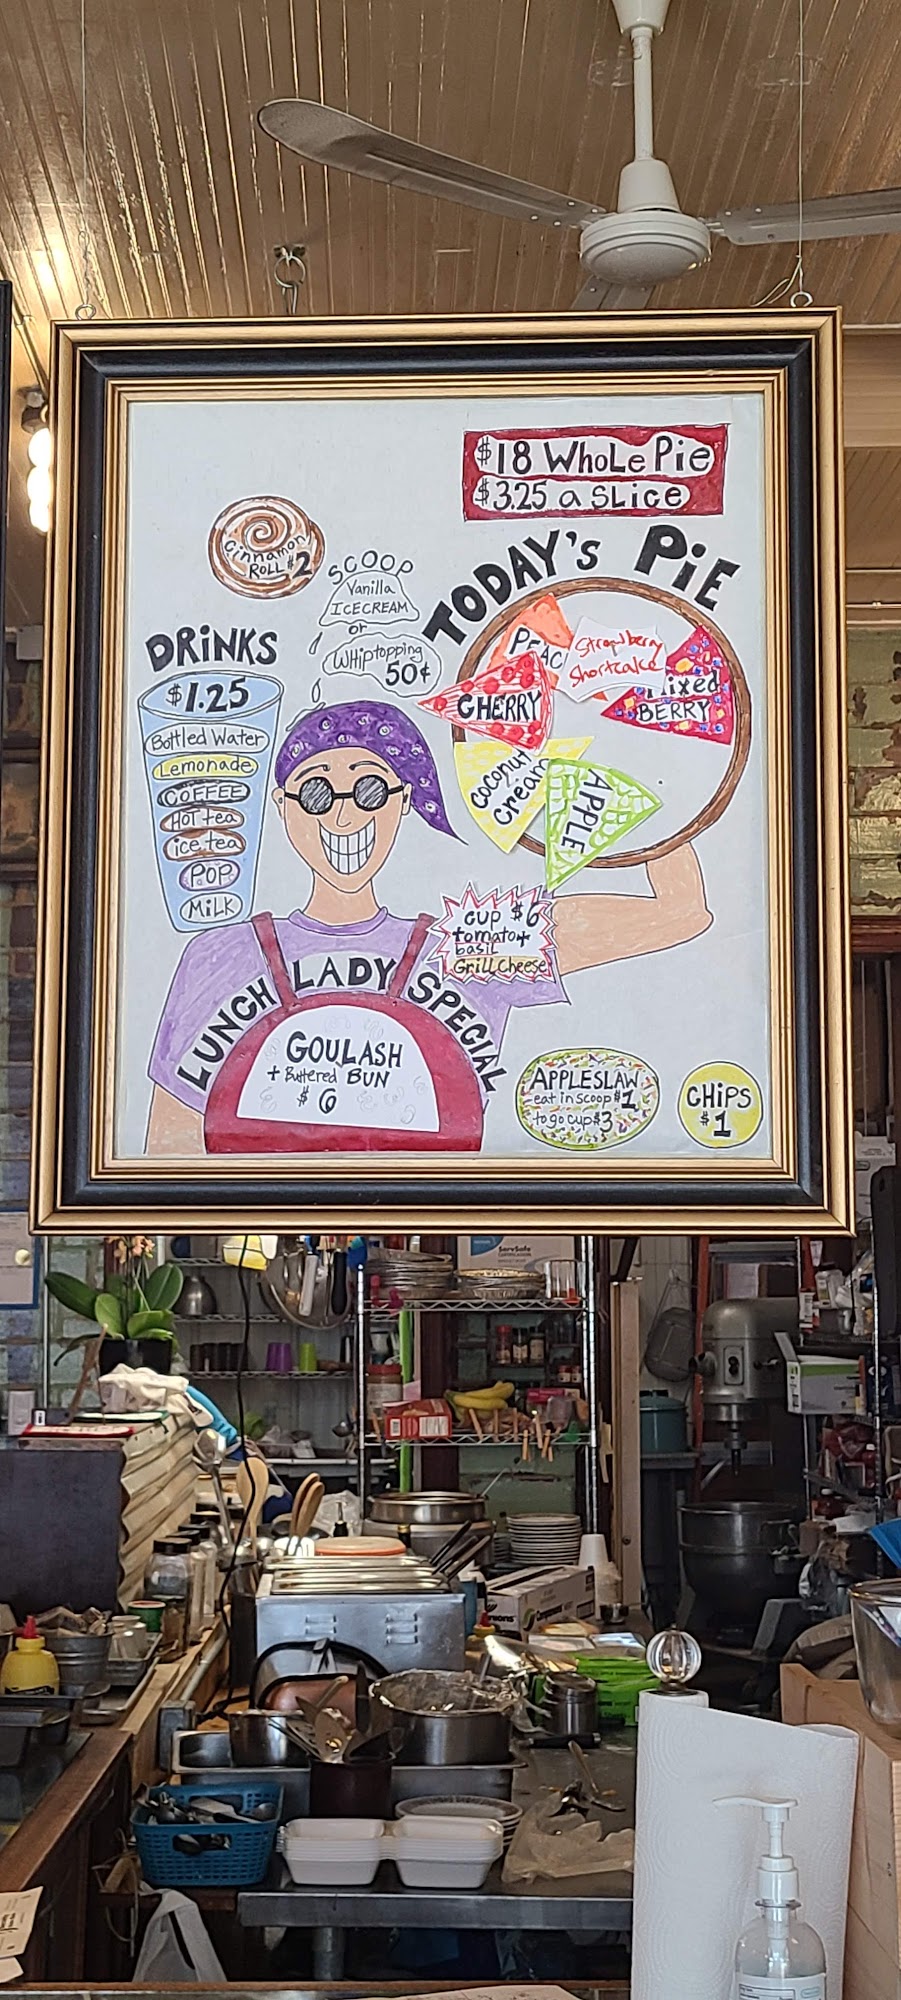 $18 WHoLe Pie
$3.25 a SLice
TODAY's PiE
Cinnamon
ROLL $2
SCOOP
Vanilla
ICECREAM
or
WHiptopping
50¢
DRiNKS
$1.25
Bottled Water
Lemonade
COFFEE
HOT tea
ice tea
POP
MiLK
PEAC
Strawberry
Shortcake
CHERRY
Mixed
BERRY
Coconut
Cream
APPLE
CUP $6
tomato+
basil
GrillCheese
LUNCH LADY SPECIAL
GOULASH
+ Buttered BUN
$6
APPLESLAW
eat in scoop $1
to go cup $3
CHiPS
$1
ServSafe